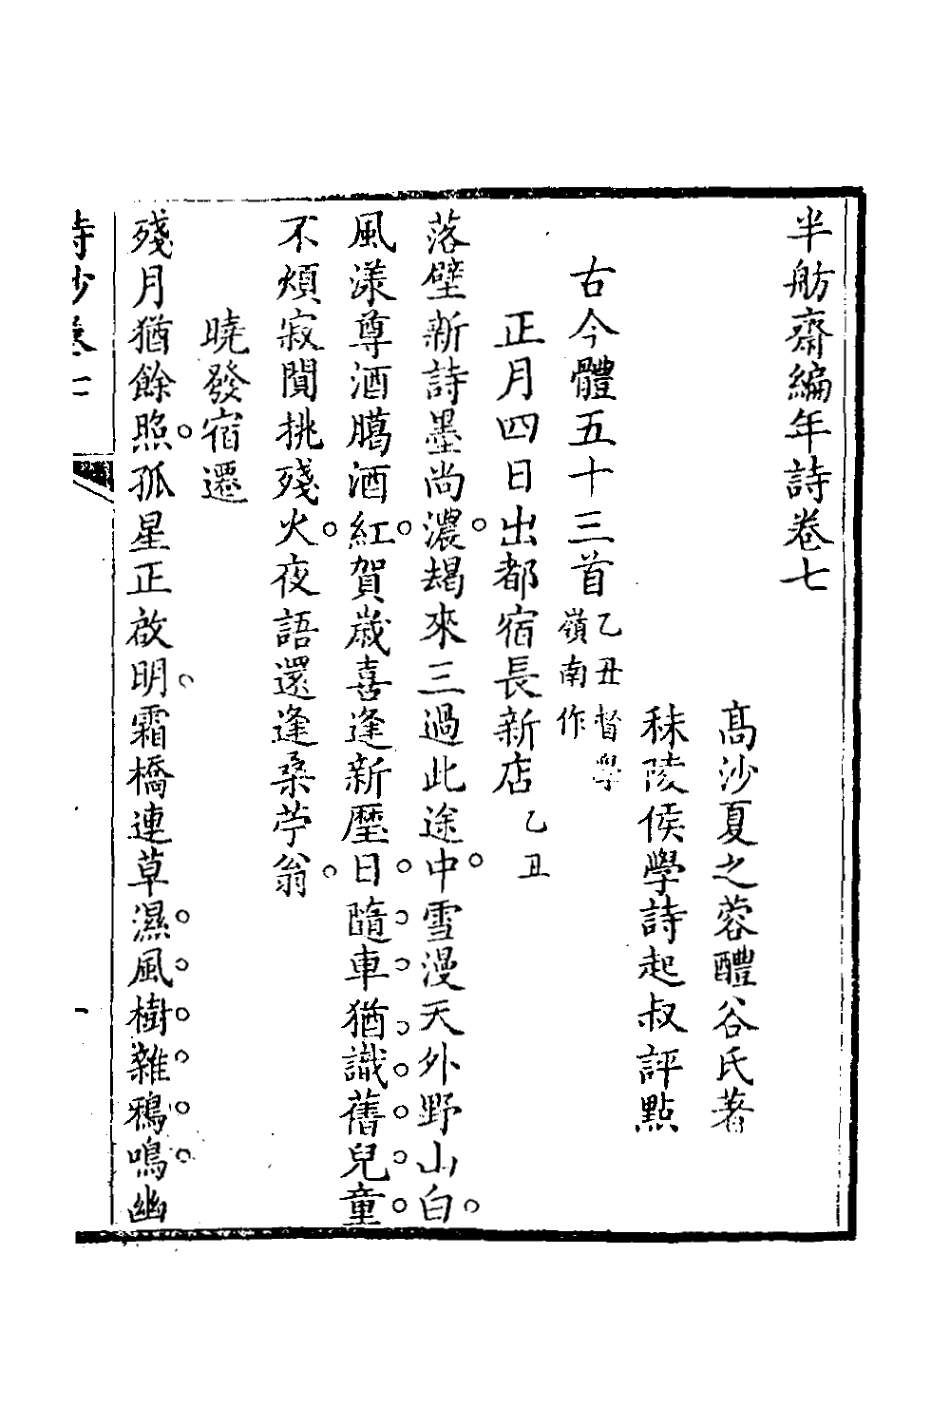 半舫齋編年詩卷七
高沙夏之蓉醴谷氏著
秣陵侯學詩起叔評點
古今體五十三首乙丑督學嶺南作
正月四日出都宿長新店乙丑
落壁新詩墨尚濃朅來三過此途中雪漫天外野山白
風漾尊酒臈酒紅賀歲喜逢新曆日隨車猶識舊兒童
不煩寂閴挑殘火夜語還逢桑苧翁
曉發宿遷
殘月猶餘照孤星正啟明霜橋連草濕風樹雜鴉鳴幽
詩鈔卷七 一